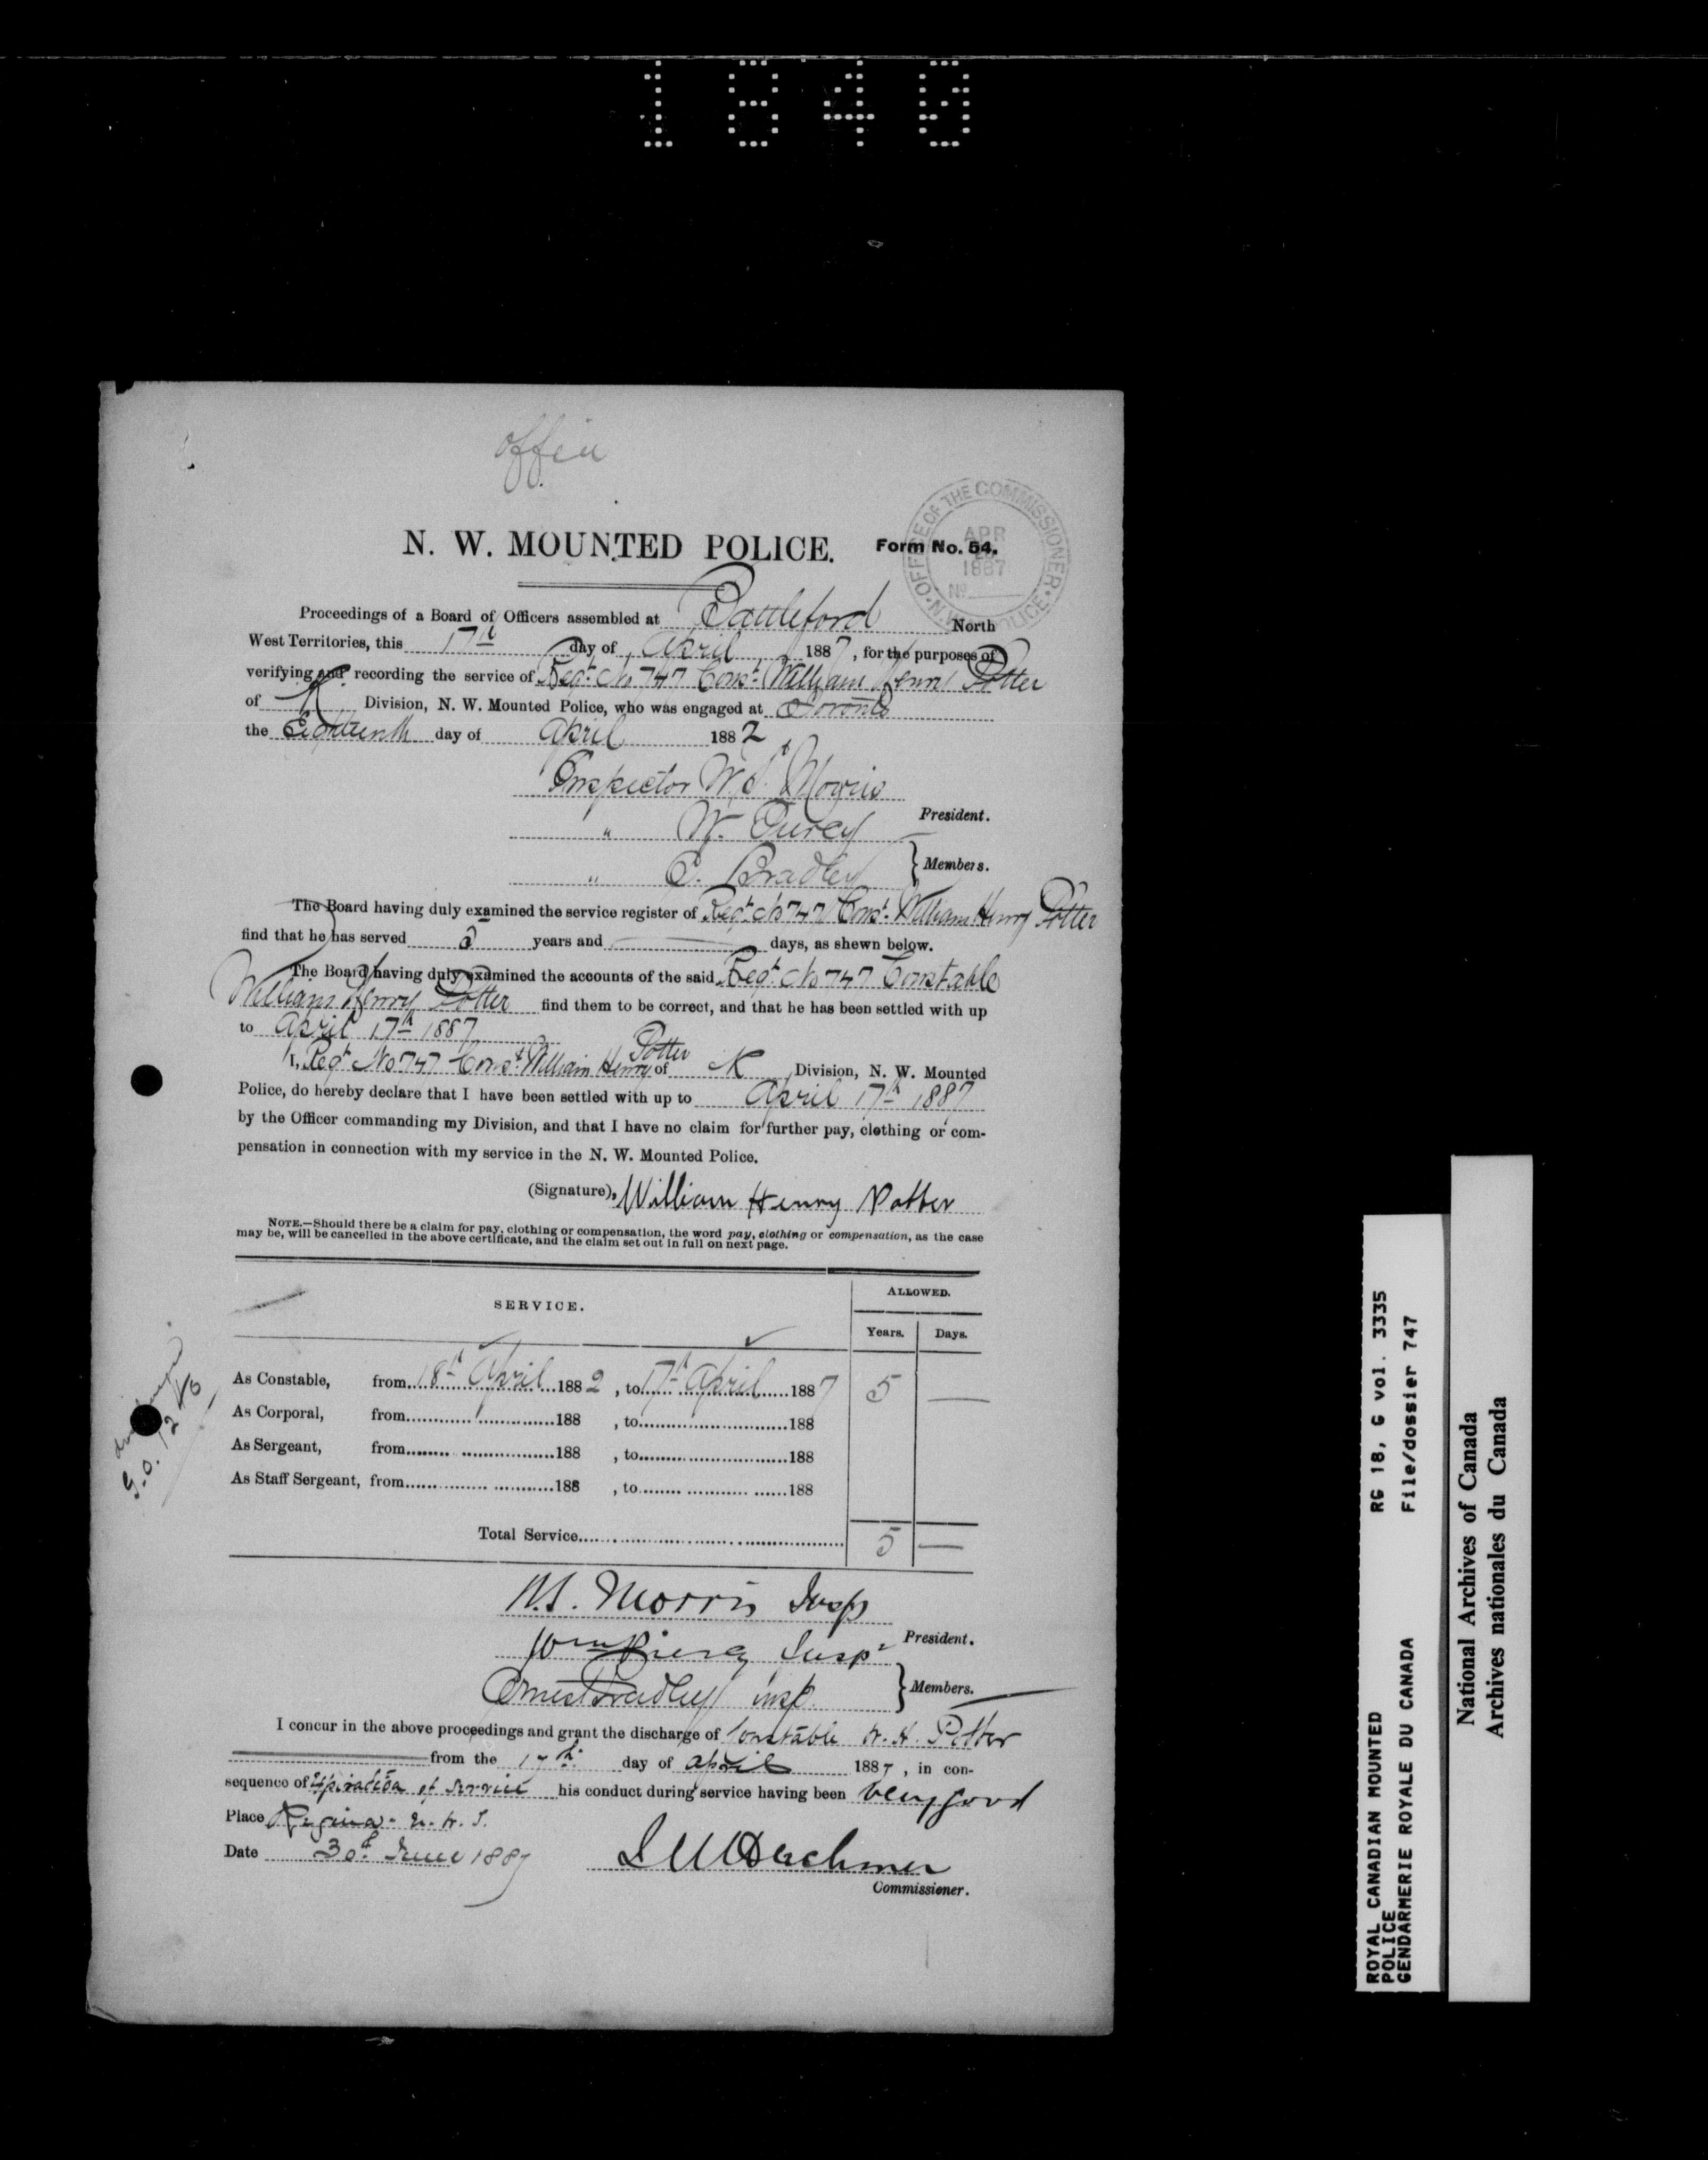 1840
Offin
N. W. MOUNTED POLICE.
Form No. 54.
OFFICE OF THE COMMISSIONER
APR
1887
No.
Proceedings of a Board of Officers assembled at Battleford North
West Territories, this 17th day of April 1887, for the purposes of
verifying and recording the service of Regt. No 747 Const. William Henry Potter
of K Division, N. W. Mounted Police, who was engaged at Toronto
the Eighteenth day of April 1882
Inspector W. S. Morris
President.
" W. Piercy
" E. Bradley
Members.
The Board having duly examined the service register of Regt. No 747 Const. William Henry Potter
find that he has served 5 years and days, as shewn below.
The Board having duly examined the accounts of the said Regt. No 747 Constable
William Henry Potter find them to be correct, and that he has been settled with up
to April 17th 1887
I, Regt. No 747 Const. William Henry Potter of K Division, N. W. Mounted
Police, do hereby declare that I have been settled with up to April 17th 1887
by the Officer commanding my Division, and that I have no claim for further pay, clothing or com-
pensation in connection with my service in the N. W. Mounted Police.
(Signature), William Henry Potter
NOTE.—Should there be a claim for pay, clothing or compensation, the word pay, clothing or compensation, as the case
may be, will be cancelled in the above certificate, and the claim set out in full on next page.
SERVICE.
ALLOWED.
Years. Days.
As Constable, from 18th April 1882, to 17th April 1887 5 —
As Corporal, from 188 , to 188
As Sergeant, from 188 , to 188
As Staff Sergeant, from 188 , to 188
Total Service 5 —
G.O.
W.S. Morris Insp
President.
Wm Piercy Insp
Ernest Bradley insp.
Members.
I concur in the above proceedings and grant the discharge of Constable W. H. Potter
from the 17th day of April 1887, in con-
sequence of expiration of service his conduct during service having been very good
Place Regina - N. W. T.
Date 30th June 1887
L W Herchmer
Commissioner.
ROYAL CANADIAN MOUNTED POLICE
GENDARMERIE ROYALE DU CANADA
RG 18, G vol. 3335
File/dossier 747
National Archives of Canada
Archives nationales du Canada